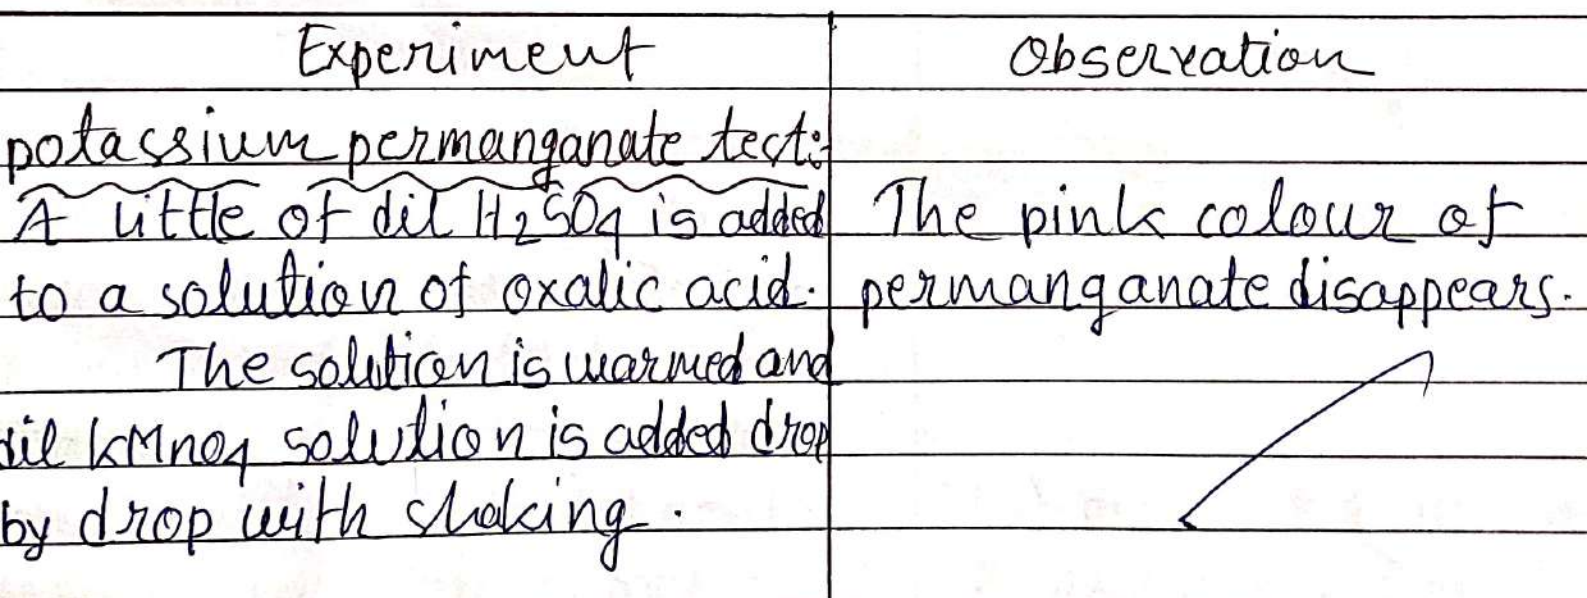 Experiment
Observation
potassium permanganate test:
A little of dil H2SO4 is added
to a solution of oxalic acid.
The solution is warmed and
dil KMnO4 solution is added drop
by drop with shaking.
The pink colour of
permanganate disappears.